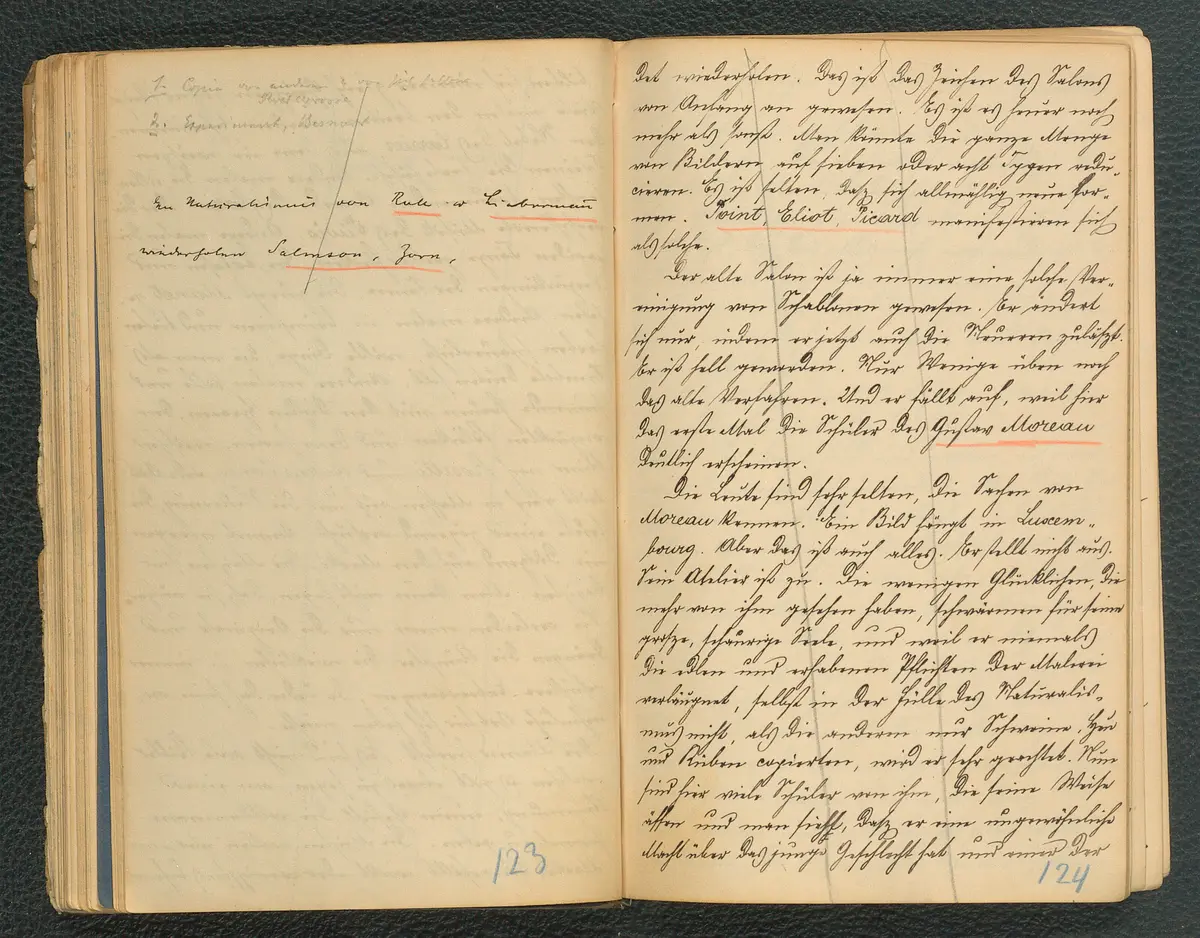 1. Copie
2. Experiment, Besnard
Den Naturalismus von Roll u Liebermann
wiederholen Salmson, Zorn,
123
det wiederholen. Das ist das Zeichen des Salons
von Anfang an gewesen. Es ist es heuer noch
mehr als sonst. Man könnte die ganze Menge
von Bildern auf sieben oder acht Typen redu-
cieren. Es ist selten, dasz sich allmählig neue For-
men. Point, Eliot, Picard manifestieren sich
als solche.
Der alte Salon ist ja immer eine solche Ver-
einigung von Schablonen gewesen. Er ändert
sich nur, indem er jetzt auch die Neueren zuläszt.
Er ist hell geworden. Nur Wenige üben noch
das alte Verfahren. Und er fällt auf, weil hier
das erste Mal die Schüler des Gustav Moreau
deutlich erscheinen.
Die Leute sind sehr selten, die Sachen von
Moreau kennen. Ein Bild hängt in Luxem-
bourg. Aber das ist auch alles. Er stellt nicht aus.
Sein Atelier ist zu. Die wenigen Glücklichen, die
mehr von ihm gesehen haben, schwärmen für seine
grosze, schaurige Seele, und weil er niemals
die edlen und erhabenen Pflichten der Malerei
verläugnet, selbst in der Fülle des Naturalis-
mus nicht, als die anderen nur Schweine, Heu
und Rüben copierten, wird er sehr geachtet. Nun
sind hier viele Schüler von ihm, die seine Weise
äffen und man sieht, dasz er eine ungewöhnliche
Macht über das junge Geschlecht hat und einer der
124